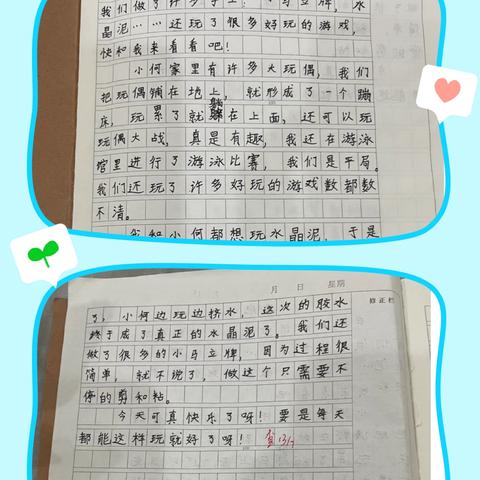 我们做了许多手工！
晶泥……还玩了很多好玩的游戏，
快和我来看看吧！
小何家里有许多大玩偶，我们
把玩偶铺在地上，就形成了一个蹦
床，玩累了就躺在上面，还可以玩
玩偶大战，真是有趣，我还在游泳
馆里进行了游泳比赛，我们是平局。
我们还玩了许多好玩的游戏数都数
不清。
我和小何都想玩水晶泥，于是
月 日 星期
修正栏
了，小何边玩边挤水，这次的胶水
终于成了真正的水晶泥了。我们还
做了很多的小马立牌，因为过程很
简单，就不说了，做这个只需要不
停的剪和粘。
今天可真快乐了呀！要是每天
都能这样玩就好了呀！